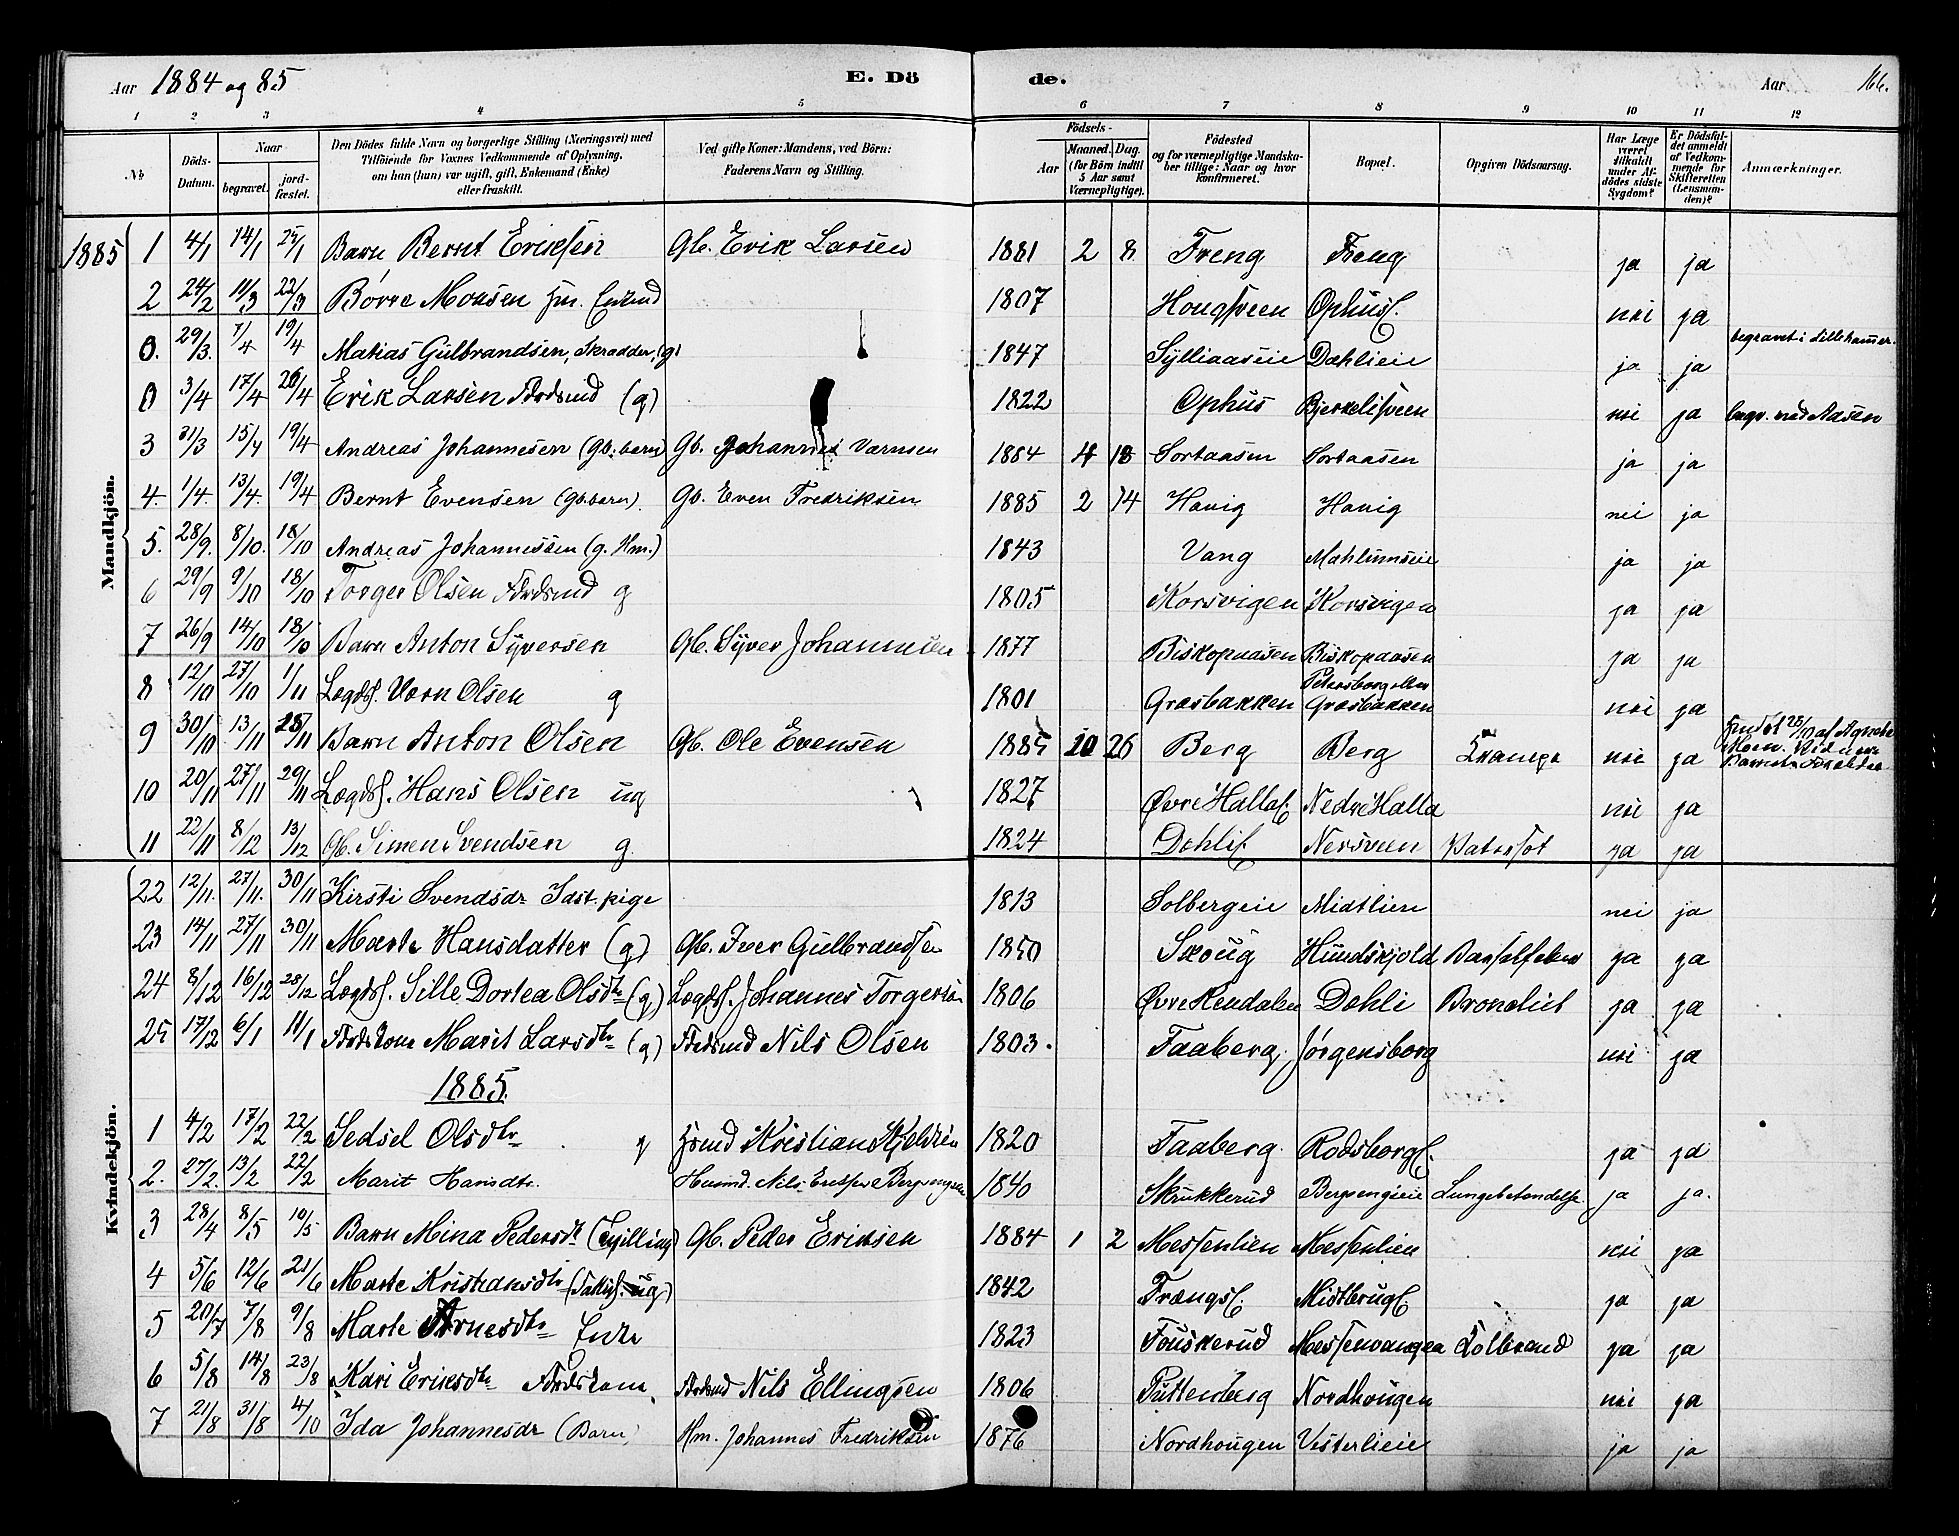 Aar 1884 og 85 E. Dö de. Aar 166.
1 2 3 4 5 6 7 8 9 10 11 12
No Döds-Datum. Naar begravet. jord-fæstet. Den Dödes fulde Navn og borgerlige Stilling (Næringsvei) med Tilföiende for Voxnes Vedkommende af Oplysning, om han (hun) var ugift, gift, Enkemand (Enke) eller fraskilt. Ved gifte Koner: Mandens, ved Börn: Faderens Navn og Stilling. Födsels- Aar Maaned. Dag. (for Börn indtil 5 Aar samt Værnepligtige). Födested og for værnepligtige Mandska-ber tillige: Naar og hvor konfirmeret. Bopæl. Opgiven Dödsaarsag. Har Læge været tilkaldt under Af-dödes sidste Sygdom? Er Dödsfal-det anmeldt af Vedkom-mende for Skifteretten (Lensman-den)? Anmærkninger.
Mandkjön.
1885 1 4/1 14/1 25/1 Barn Bernt Eriksen Gb. Erik Larsen 1881 2 8 Freng Freng ja ja
2 24/2 11/3 22/3 Børre Monsen 1807 Hougsveen Ophus nei ja
0. 29/3. 7/4 19/4 Matias Gulbrandsen, Skrædder, (g) 1847 Sylliaaseie Dæhlieie ja ja begravet i Lillehammer.
0 3/4 17/4 26/4 Erik Larsen (g) 1822 Ophus nei ja begr. ved Aasen
3 31/3 15/4 19/4 Andreas Johannesen (Gb. barn) Gb. Johannes 1884 4 18 Sortaasen Sortaasen ja ja
4. 1/4. 13/4. 19/4 Bernt Evensen (Gb. barn). Gb. Even Fredriksen 1885 2 14 Havig Havig nei ja
5. 28/9. 8/10. 18/10 Andreas Johannessen (g. Hm.) 1843 Vang Mæhlumseie ja ja
6 29/9 9/10 18/10 Torger Olsen g 1805 Korsvigen Korsvigen ja ja
7 26/9 14/10 18/10 Barn Anton Syversen Gb. Syver Johannesen 1877 Biskopaasen Biskopaasen ja ja
8 12/10 27/10 1/11 Lægdsl. Olsen g 1801 Græsbakken Petersborg eller Græsbakken nei ja
9 30/10 13/11 Barn Anton Olsen Gb. Ole Evensen 10 26 Berg Berg Krampe nei ja
10 20/11 27/11 29/11 Lægdsl. Hans Olsen ug 1827 Øvre Halla Nedre Halla nei ja
11 22/11 8/12 13/12 Gb. Simen Svendsen g. 1824 Dehli ja ja
Kvindekjön.
22 12/11. 27/11. 30/11 Kirsti Svendsdr pige 1813 Solbergeie Midtlien nei ja
23 14/11 27/11 30/11 Marte Hansdatter (g) Gb. Iver Gulbrandsen 1850 Skoug Hundskjold Barselfeber ja ja
24 8/12 16/12 28/12 Lægdsl. Sille Dortea Olsdtr (g) Lægdsl. Johannes Torgersen 1806 Øvre Dehli ja ja
25 17/12 6/1 11/1 Marit Larsdtr (g) Nils Olsen 1803. Faaberg. Jørgensborg nei ja
1885.
1 4/2 17/2 22/2 Sedsel Olsdtr g Kristian 1820 Faaberg. ja ja
2. 27/2. 13/2 22/2 Marit Hansdtr. 1840 Skrukkerud Bergsengeie Lungebetændelse ja ja.
3 28/4 8/5 10/5 Barn Mina Pedersdtr (tvilling) Gb. Peder Eriksen 1884 1 2 Messenlien Messenlien nei ja
4 5/6 12/6 21/6 Marte Kristiansdtr ug) 1842 ja ja
5 20/7 7/8 9/8 Marte Arnesdtr Enke 1823 Fouskerud Messenvangen Kolbrand ja ja
6 5/8 14/8 23/8 Kari Eriksdtr Nils Ellingsen 1806 Nordhougen nei ja
7 21/8 31/8 4/10 Ida Johannesdr (Barn) Hm. Johannes Fredriksen 1876 Nordhougen Vesterlieie ja ja